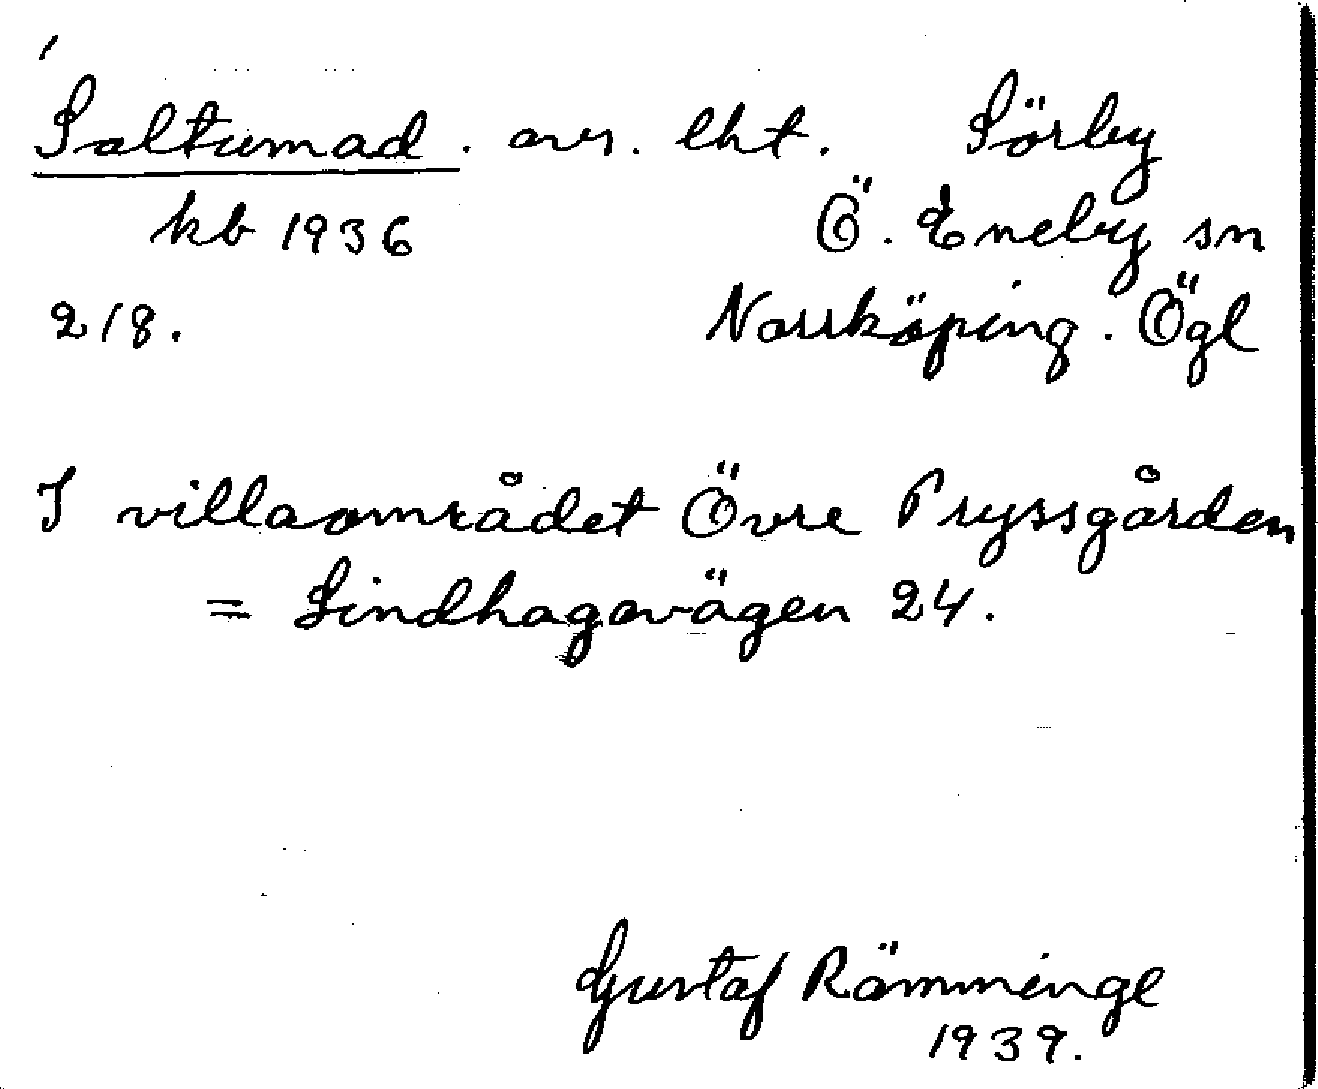 Saltumad. avs. lht. Sörby
kb 1936 Ö. Eneby sn
218. Norrköping. Ögl
I villaområdet Övre Pryssgården
= Lindhagavägen 24.
Gustaf Römminge
1939.